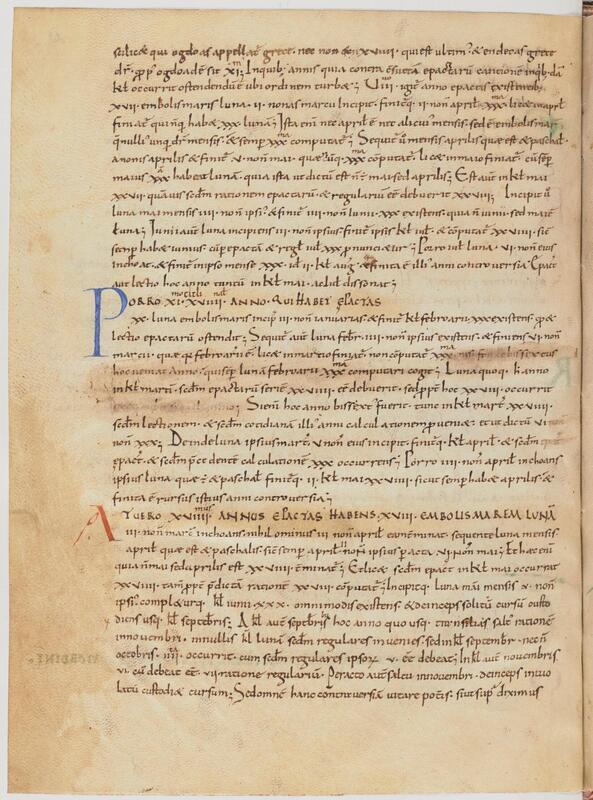 scilic& qui ogdoas appellat̃ grece. nec non & in xviiii. qui est ultim' & endecas grece
dr̃. propt̃ ogdoade sit xi; In quib; annis quia contra c̃sueta epactarũ
kƚ occurrit ostendendũ ẽ ubi ordinem turbae; igit̃ anno epactis existentib;
xvii. embolismaris luna. ii. nonas marcii incipit. finitq; ii non april. xxx. lic& in april
finiat̃ quinq; hab& xxx. luna; Ista eni nec april ẽ nec alicui' mensis. sed ẽ embolismar
q̃ nulli' unq̃ dr̃ mensis. & semp xxx computat̃; Sequit̃ ũ mensis aprilis quae est & paschal'
a nonis aprilis & finit̃ v. non mai. xxx cõputat̃. lic& in maio finiat̃. cũ semp
maius xxx habeat luna. quia ista ut dictũ est nr̃ mai sed aprilis; Est aut̃ in kƚ mai
xxvii. quãuis scdm̃ rationem epactarũ. & regulariũ eẽ debuerit xxviii; Incipit ũ
luna mai mensis iiii. non ipsi' & finit̃ iiii. non iunii. xxx existens. quia n̄ iunii. sed mai eẽ
luna; Iunii aut̃ luna incipiens iii. non ipsius. finit̃ ipsis kƚ iuƚ. & cõputat̃ xxviiii. sic̃
semp hab& iunius cũ p epacta & reg̃ iuƚ xxx pnunciaeur; Porro iuƚ luna. vi. non eius
inchoat. & finit̃ in ipso mense xxx. iđ ii kƚ aug̃. & finita ẽ illi' anni controuersia.
aut lectio hoc anno tantũ in kƚ mai. ac iuƚ dissonat;
PORRO XI. ANNO. QUI HABET EPACTAS
xx. luna embolismaris incip̃ iii. non ianuarias. & finit̃ kƚ februarii. xxx existens. p &
lectio epactarũ ostendit; Sequit̃ aut̃ luna febr̃ iiii. non ipsius existens. & finiens vi. non
marcii. quae q̃ februarii ẽ. lic& in martio finiat̃. non cõputat̃ xxx. nisi forte bissextus
hoc ueniat anno. qui semp luna februarii xxx computari cogit; Luna quoq; h anno
in kƚ martii. scdm̃ epactarũ seriẽ xxviiii. eẽ debuerit. sed ppt̃ hoc xxviii. occurrit
Si eni hoc anno bissext' fuerit. tunc in kƚ mart̃ xxviiii.
scdm̃ lectionem. & scdm̃ cotidiana illi' anni calculatione p ueniae. et ut dictũ vi
non xxx; Deinde luna ipsius mart̃. v non eius incipit. finitq; kƚ april. & scdm̃
epact̃. & scdm̃ p̃cedente calculatione xxx occurrens; Porro iiii. non april inchoans
ipsius luna quae ẽ & paschal finitq; ii. kƚ mai xxviiii. sicut semp hab& aprilis. &
finita ẽ rursus istius anni controuersia;
AT UERO XVIIII ANNUS EPACTAS HABENS. XVIII. EMBOLISMAREM LUNÃ
iii. non mar̃ inchoans nihil ominus iii non april ea nẽ minat̃. sequente luna mensis
april quae est & paschalis. sic̃ semp april ii non ipsius p acta. vi. non mai; Et haec eni
quia n̄ mai sed aprilis est xxviiii. c̃minat̃; Et lic& scdm̃ epact̃ in kƚ mai occurrat
xxviiii. tam̃ ppt̃ p̃dicta ratione xxviii. cõputat̃; Incipitq; luna mai mensis v. non
ipsi'. complaeurq; kƚ iunii. xxx. omnimodis existens. & deinceps solitũ cursũ custo
diens usq; kƚ septembris; A kƚ aut̃ septembris hoc anno quo usq; transilias salt̃ ratione
in nouembri. in nullis kƚ lunã scdm̃ regulares inuenies. sed in kƚ septembr̃. nec n̄
octobris. iiii. occurrit. cum scdm̃ regulares ipsorꝝ. v. eẽ debeat; In kƚ aut̃ nouembris
vi. cũ debeat eẽ. vii ratione regulariũ. Peracto aut̃ saltu in nouembri. deinceps inuio
latũ custodiae cursum; Sed omnẽ hanc controuersia uitare potes. sicut sup̃ diximus